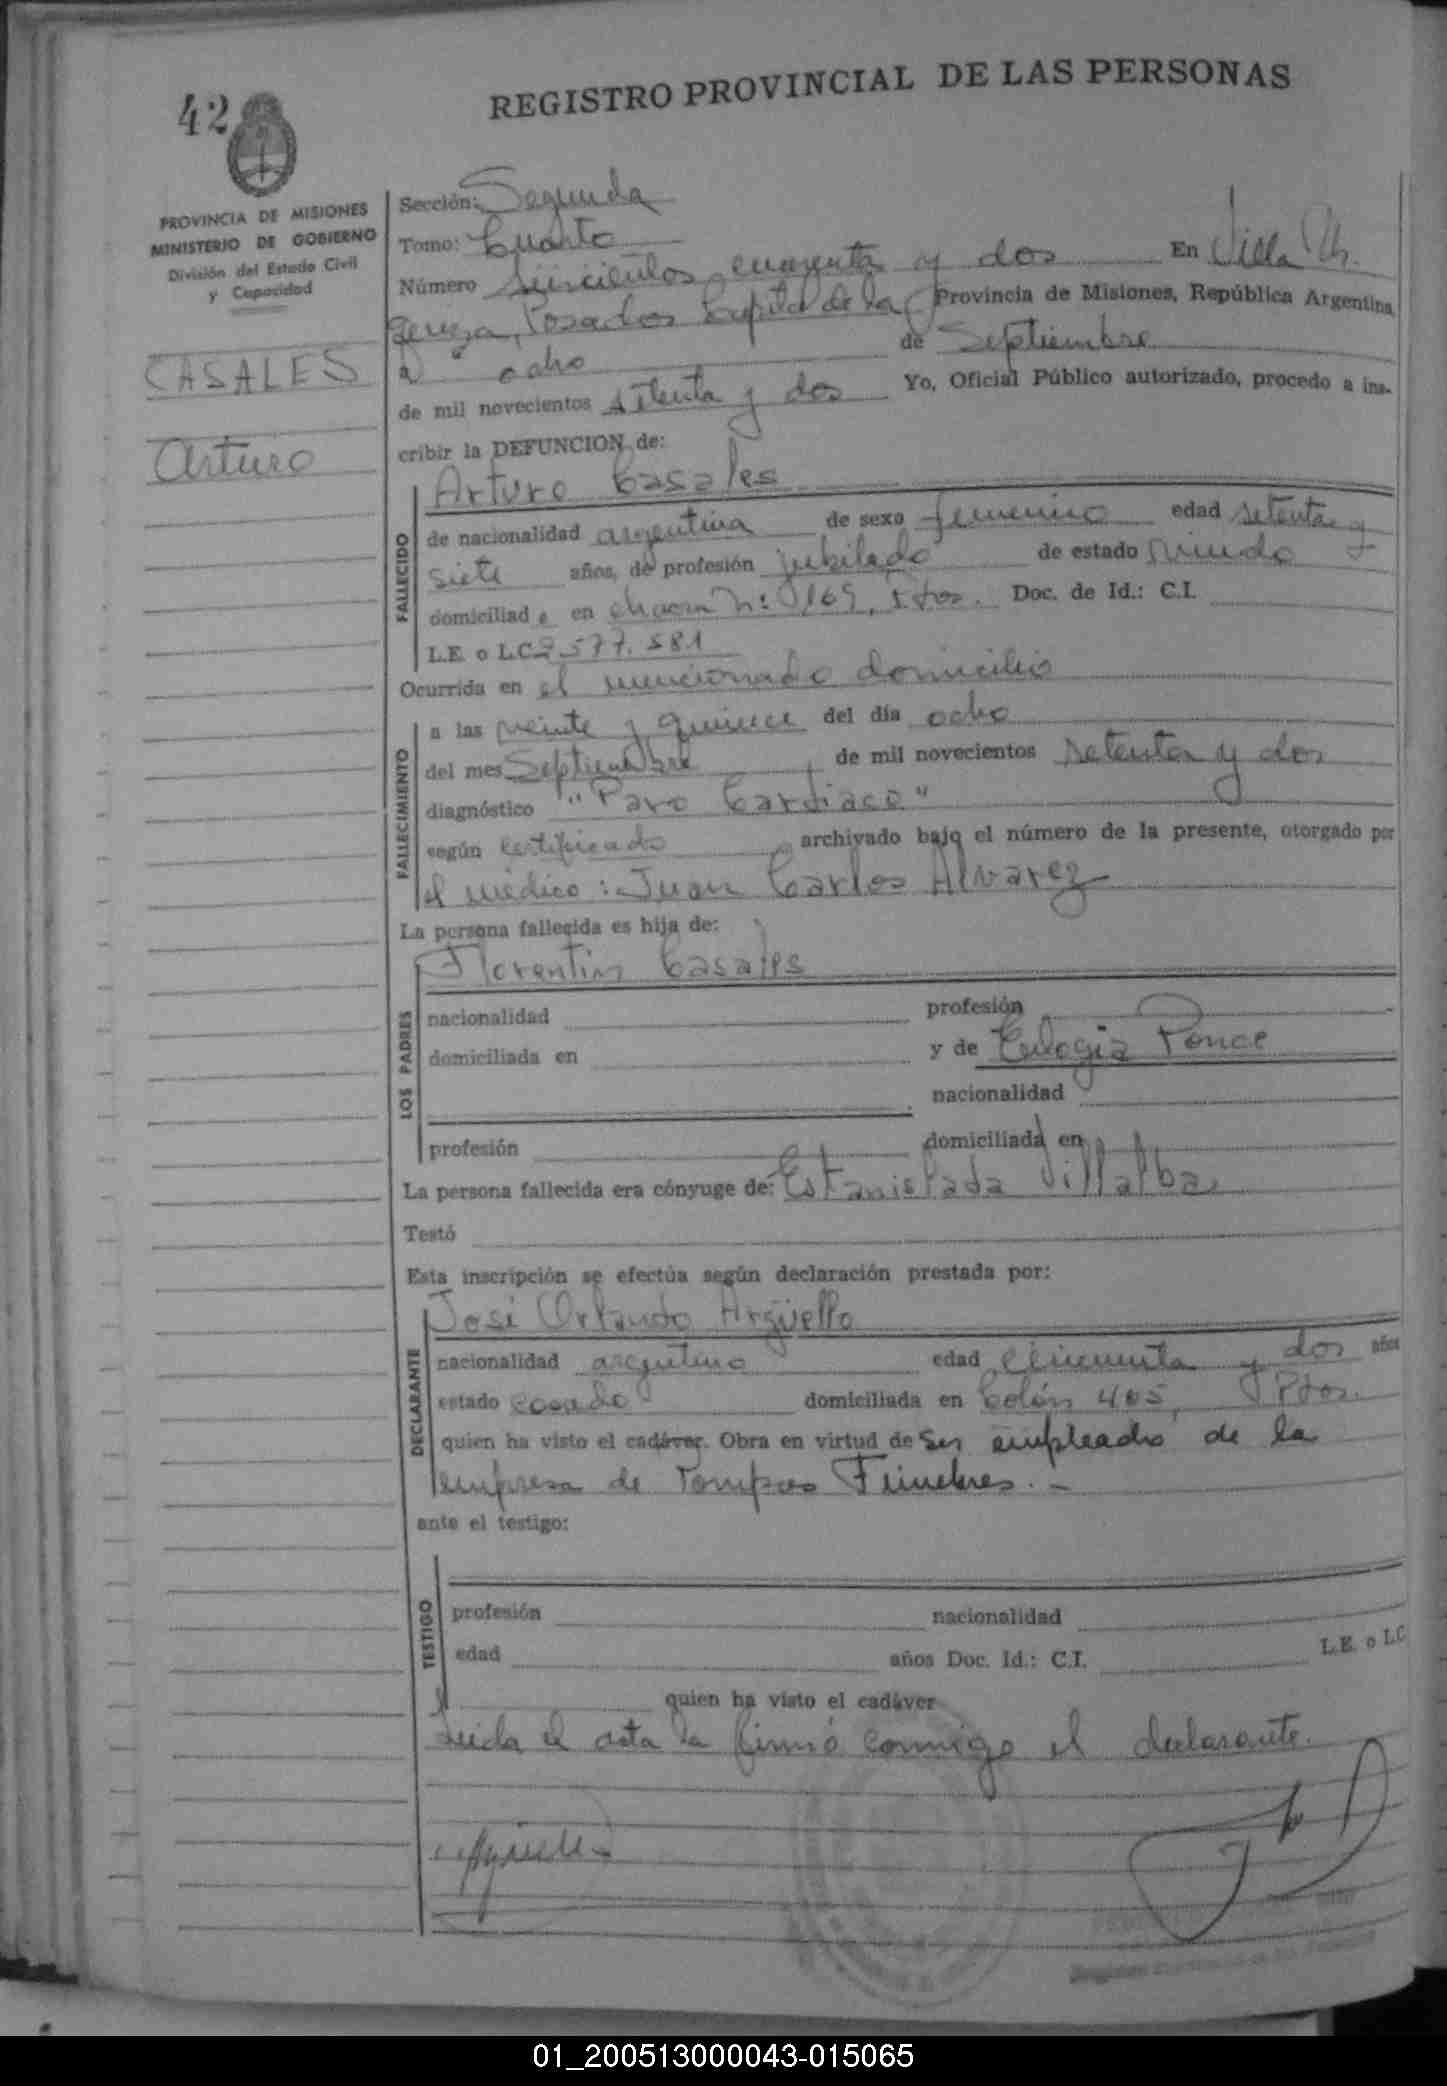 42
REGISTRO PROVINCIAL DE LAS PERSONAS
PROVINCIA DE MISIONES
MINISTERIO DE GOBIERNO
División del Estado Civil
y Capacidad
CASALES
Arturo
Sección: Segunda
Tomo: Cuarto
Número Seiscientos cuarenta y dos En Villa
Posadas Capital de la Provincia de Misiones, República Argentina
a ocho de Septiembre
de mil novecientos setenta y dos Yo, Oficial Público autorizado, procedo a ins-
cribir la DEFUNCION de:
FALLECIDO
Arturo Casales
de nacionalidad argentina de sexo femenino edad setenta y
siete años, de profesión jubilado de estado viudo
domiciliad o en chacra Nº 169, Pdas. Doc. de Id.: C.I.
L.E. o L.C. 2.577.581
Ocurrida en el mencionado domicilio
FALLECIMIENTO
a las veinte y quince del día ocho
del mes Septiembre de mil novecientos setenta y dos
diagnóstico "Paro Cardiaco"
según certificado archivado bajo el número de la presente, otorgado por
el médico: Juan Carlos Alvarez
La persona fallecida es hija de:
LOS PADRES
Florentin Casales
nacionalidad profesión
domiciliada en y de Eulogia Ponce
nacionalidad
profesión domiciliada en
La persona fallecida era cónyuge de: Estanislada Villalba
Testó
Esta inscripción se efectúa según declaración prestada por:
DECLARANTE
José Orlando Argüello
nacionalidad argentino edad cincuenta y dos años
estado casado domiciliada en Colón 405, Pdas.
quien ha visto el cadáver. Obra en virtud de ser empleado de la
empresa de Pompas Fúnebres.-
ante el testigo:
TESTIGO
profesión nacionalidad
edad años Doc. Id.: C.I. L.E. o L.C
quien ha visto el cadáver
Leida el acta la firmó conmigo el declarante.
01_200513000043-015065